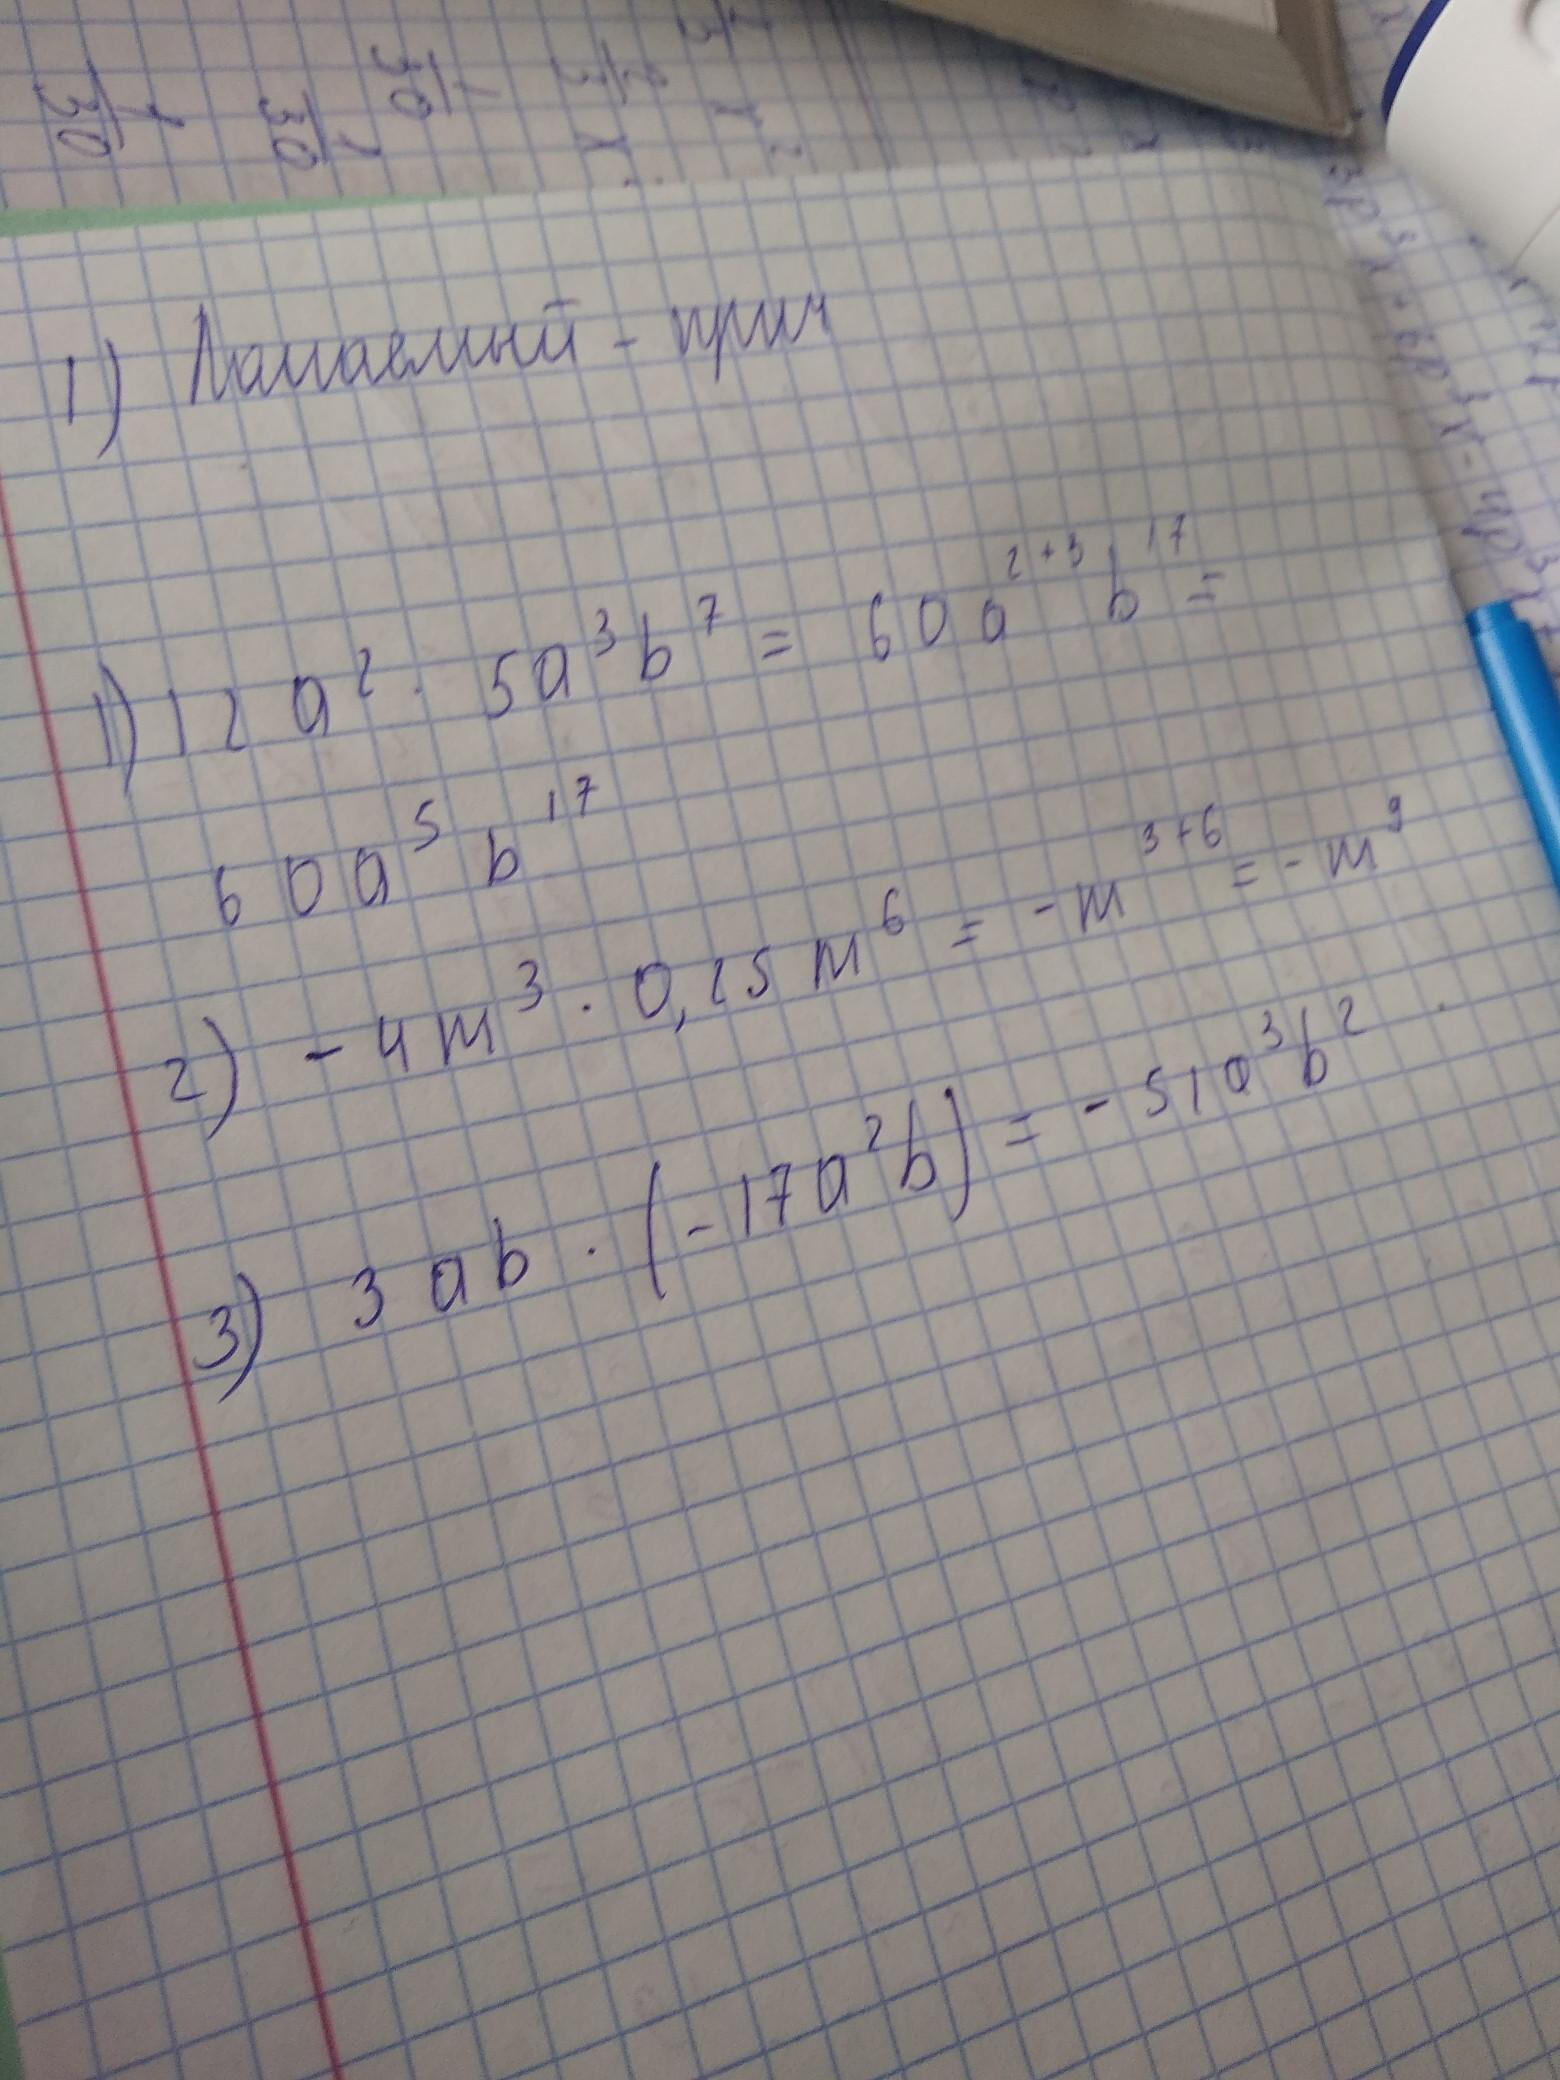 1) Ломаемый - прич
1) 12a² · 5a³b⁷ = 60a²⁺³ b¹⁷ =
60a⁵ b¹⁷
2) - 4m³ · 0,25 m⁶ = -m³⁺⁶ = -m⁹
3) 3ab · (-17a²b) = - 51a³b²